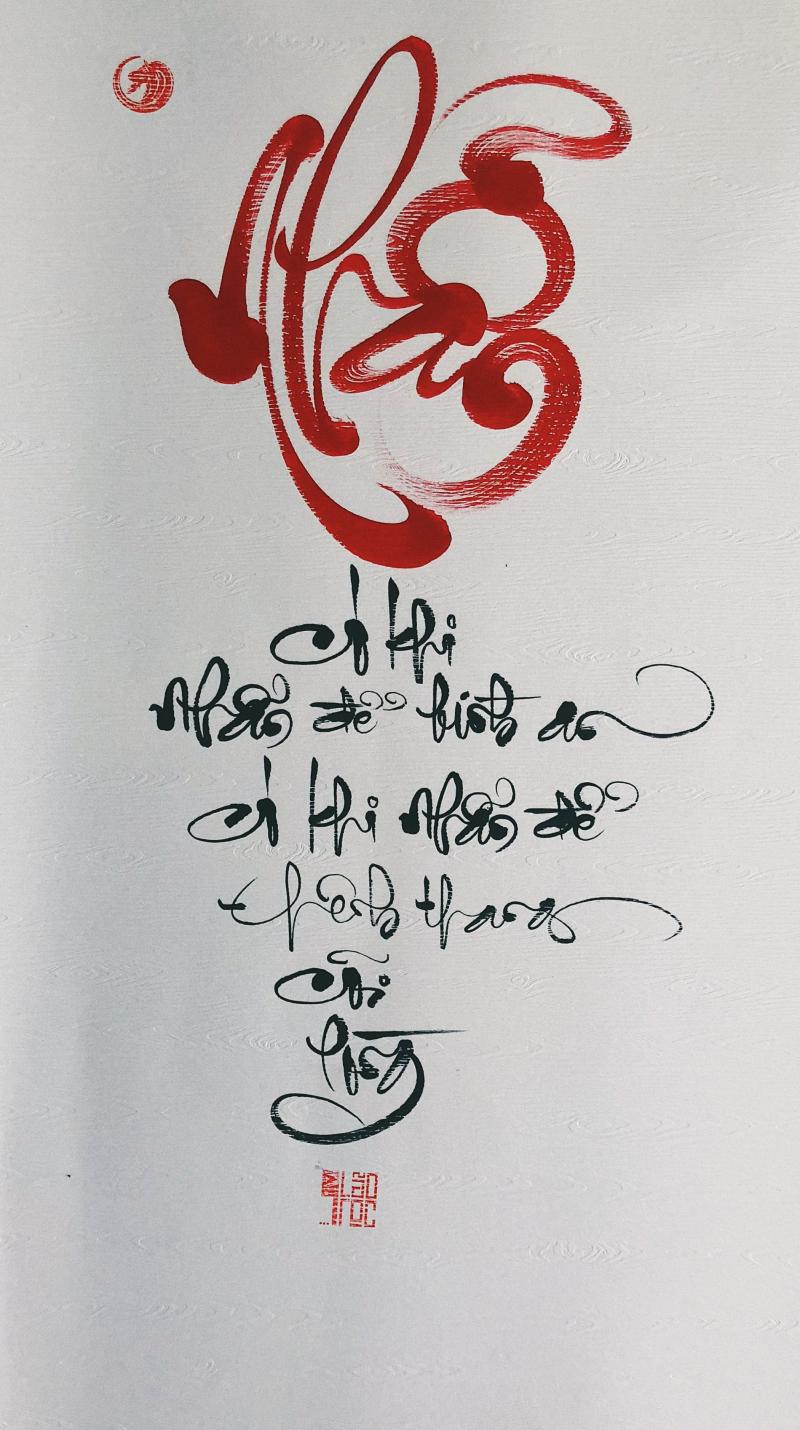 Nhẫn
Có khi
Nhẫn để bình an
Có khi Nhẫn để
thênh thang
Cõi
Lòng